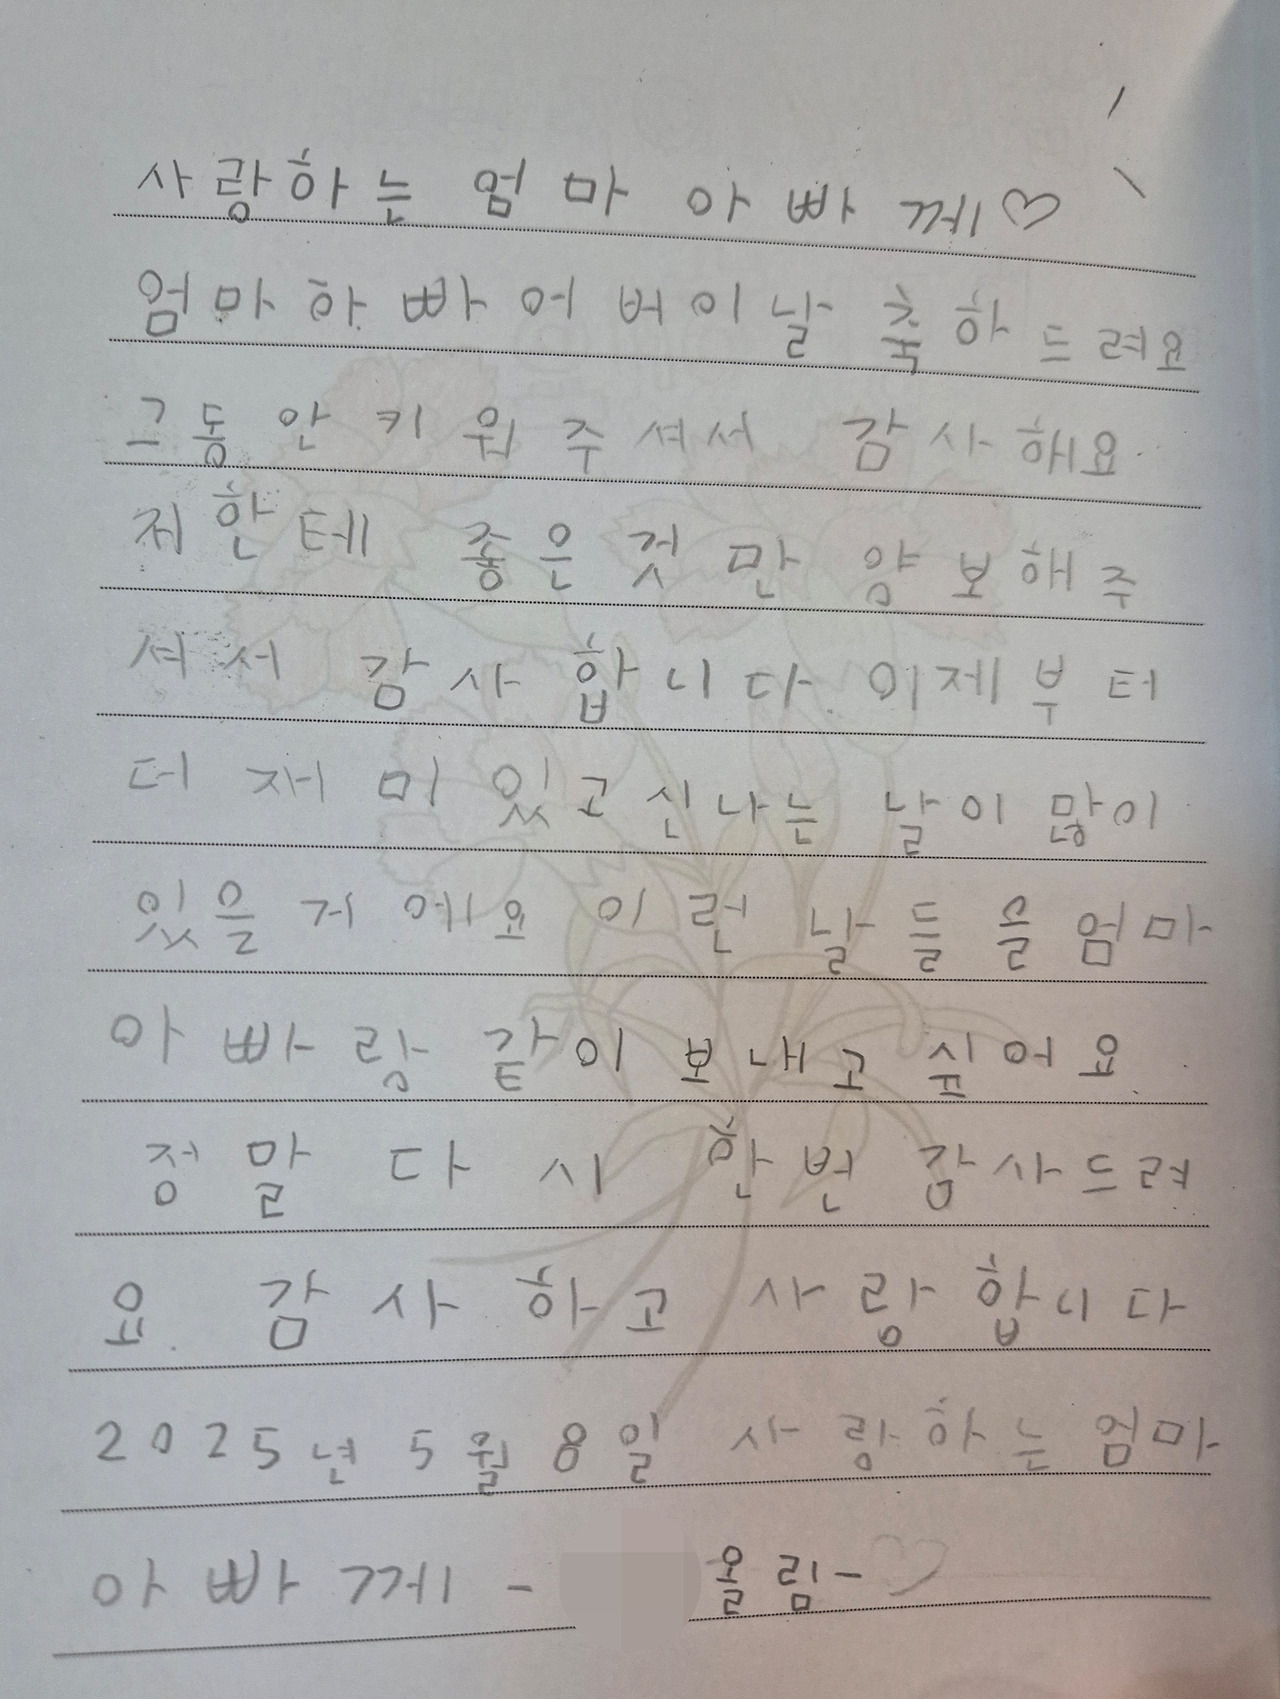 사랑하는 엄마 아빠께♡
엄마하빠 어버이날 축하드려요
그동안 키워주셔서 감사해요.
저한테 좋은것만 양보해주
셔서 감사합니다. 이제부터
더 재미있고 신나는 날이 많이
있을거에요 이런 날들을 엄마
아빠랑 같이 보내고 싶어요.
정말 다시 한번 감사드려
요. 감사하고 사랑합니다
2025년 5월 8일 사랑하는 엄마
아빠께 -
올림-♡